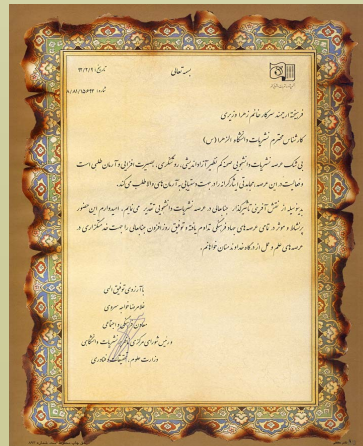 بسمه تعالی
تاریخ: ۹۳/۲/۹
فرهیخته ارجمند سرکار خانم زهرا وزیری
کارشناس محترم نشریات دانشگاه الزهرا (س)
بی شک عرصه نشریات دانشجویی صحنه کم نظیر آزاداندیشی، روشنگری، بصیرت افزایی و آرمان طلبی است
و فعالیت در این عرصه مجاهدتی ایثارگرانه در جهت دستیابی به آرمان های والا طلب می کند.
بدینوسیله از نقش آفرینی تاثیرگذار جنابعالی در عرصه نشریات دانشجویی تقدیر می نمایم. امیدوارم این حضور
پرنشاط و موثر در تمامی عرصه های جهاد فرهنگی تداوم یافته و توفیق روزافزون جنابعالی را جهت خدمتگزاری در
عرصه های علم و عمل از درگاه خداوند منان خواهانم.
با آرزوی توفیق الهی
غلامرضا خواجه سروی
معاون فرهنگی و اجتماعی
و رییس شورای مرکزی نشریات دانشگاهی
وزارت علوم، تحقیقات و فناوری